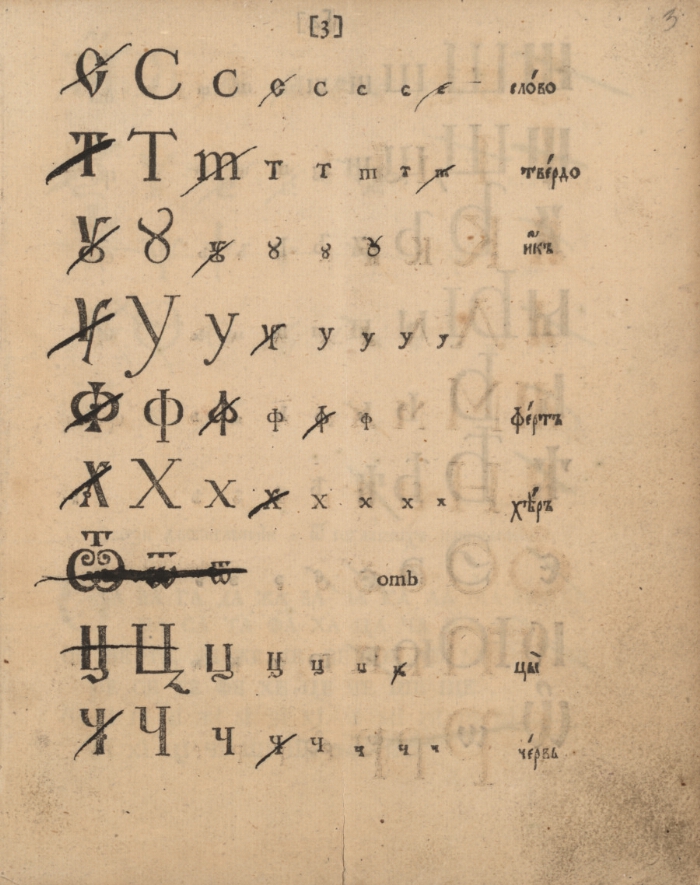 [3] 3
Ѕ С С с с с с с с слóво
Т Т т т т т т т твéрдо
Ꙋ Ꙋ ꙋ ꙋ ꙋ ꙋ и҆́къ
Ѵ У у у у у у у
Ф Ф ф ф ф ф фéртъ
Х Х х х х х х х хѣ́ръ
Ѿ ѿ ѿ отъ
Ц Ц ц ц ц ц ц цы̀
Ч Ч ч ч ч ч ч ч чéрвь